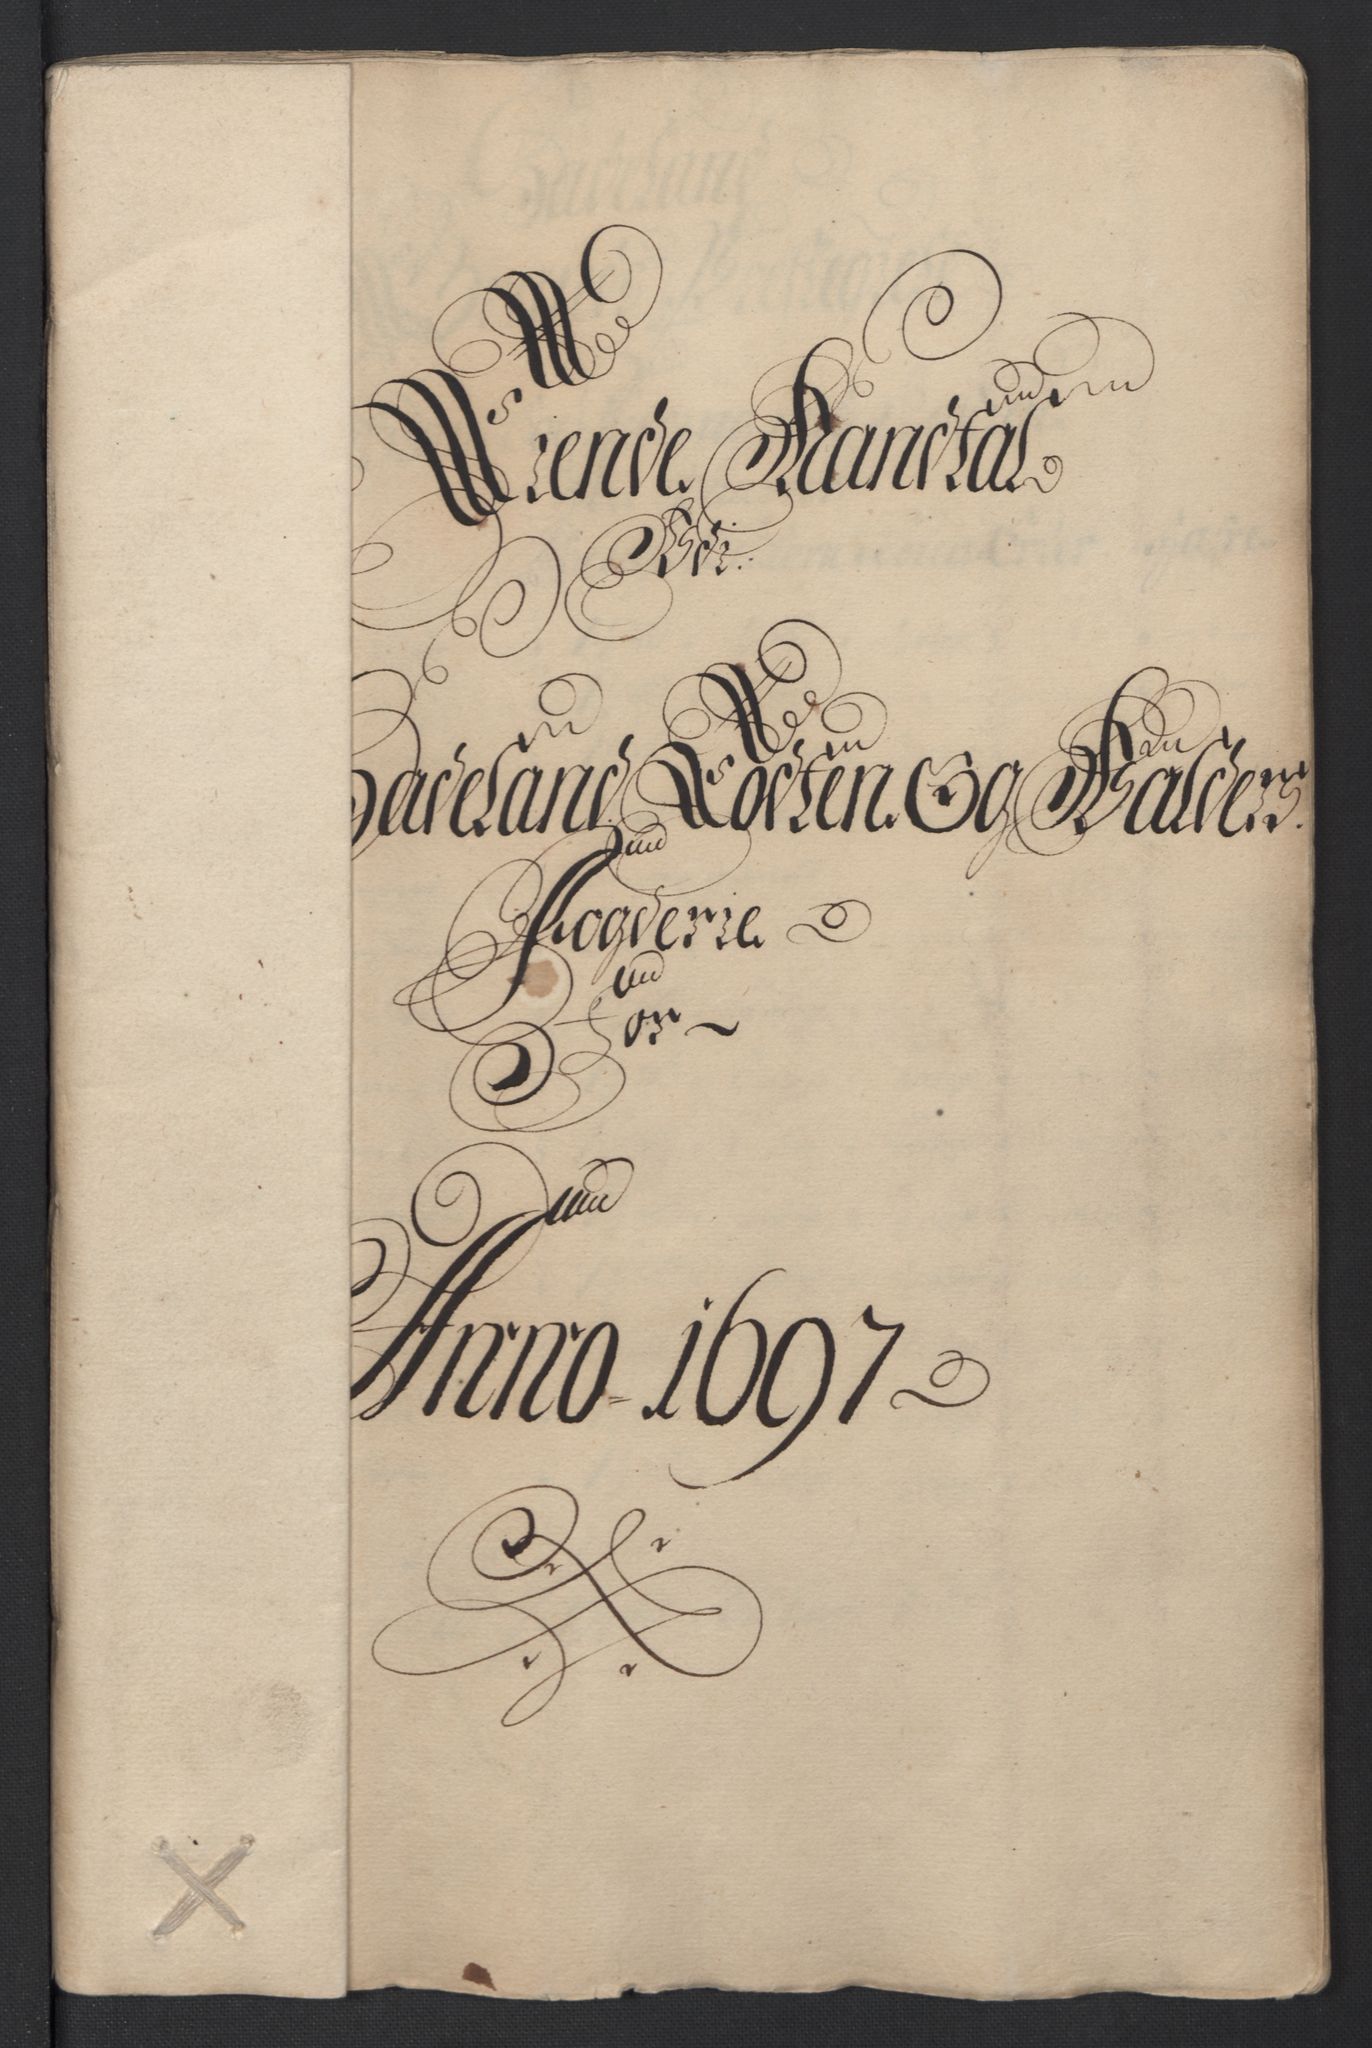 Tiende Mandtal
Udi
Hadeland Toten Og Valders
Fogderie
For
Anno 1697